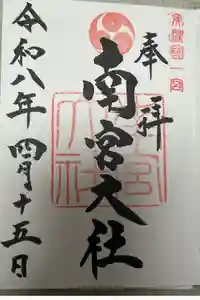 美濃國一宮
奉拝
南宮大社
令和八年四月十五日